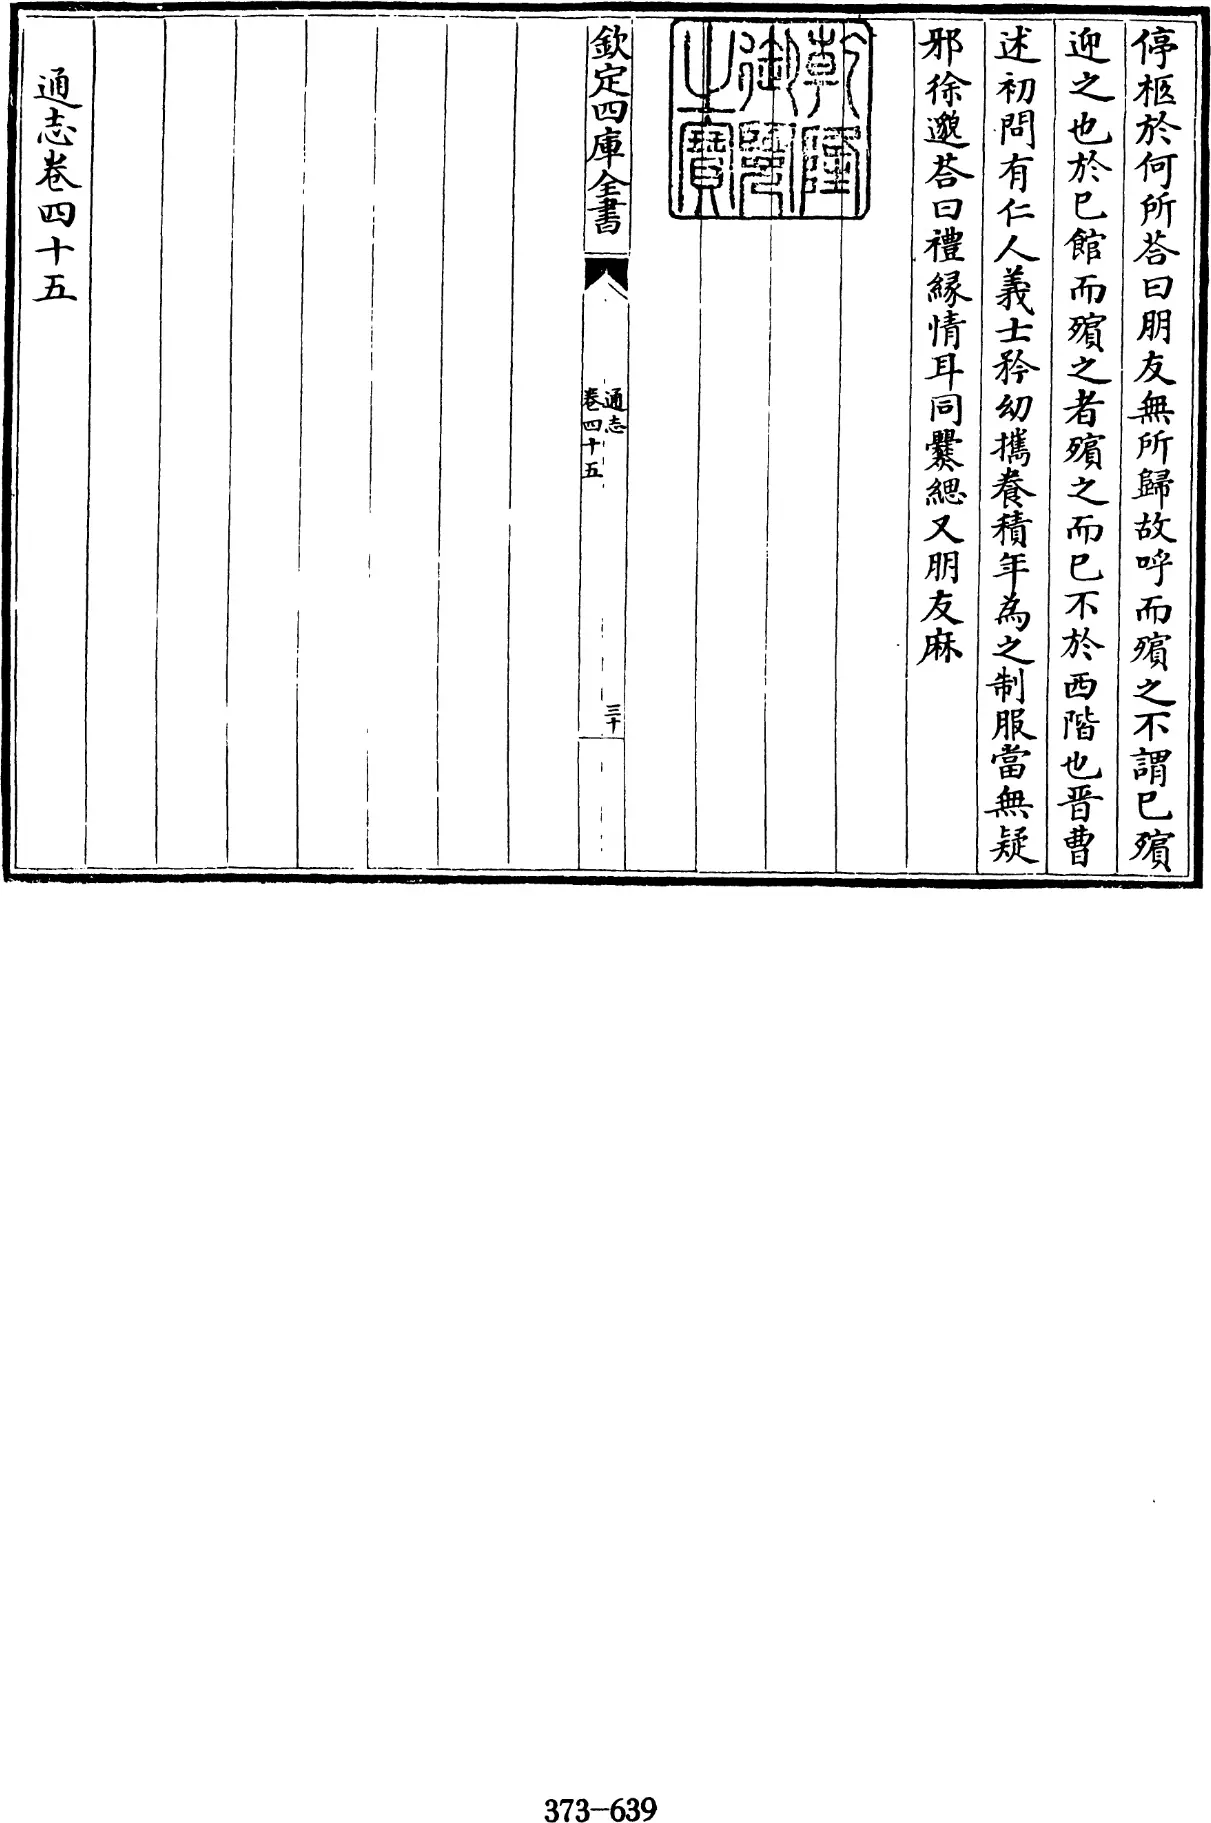 停柩於何所荅曰朋友無所歸故呼而殯之不謂已殯
迎之也於已館而殯之者殯之而已不於西階也晋曹
述初問有仁人義士矜幼攜養積年為之制服當無疑
邪徐邈荅曰禮緣情耳同爨緦又朋友麻
乾隆御覽之寶
欽定四庫全書
通志
卷四十五
三十
通志卷四十五
373-639